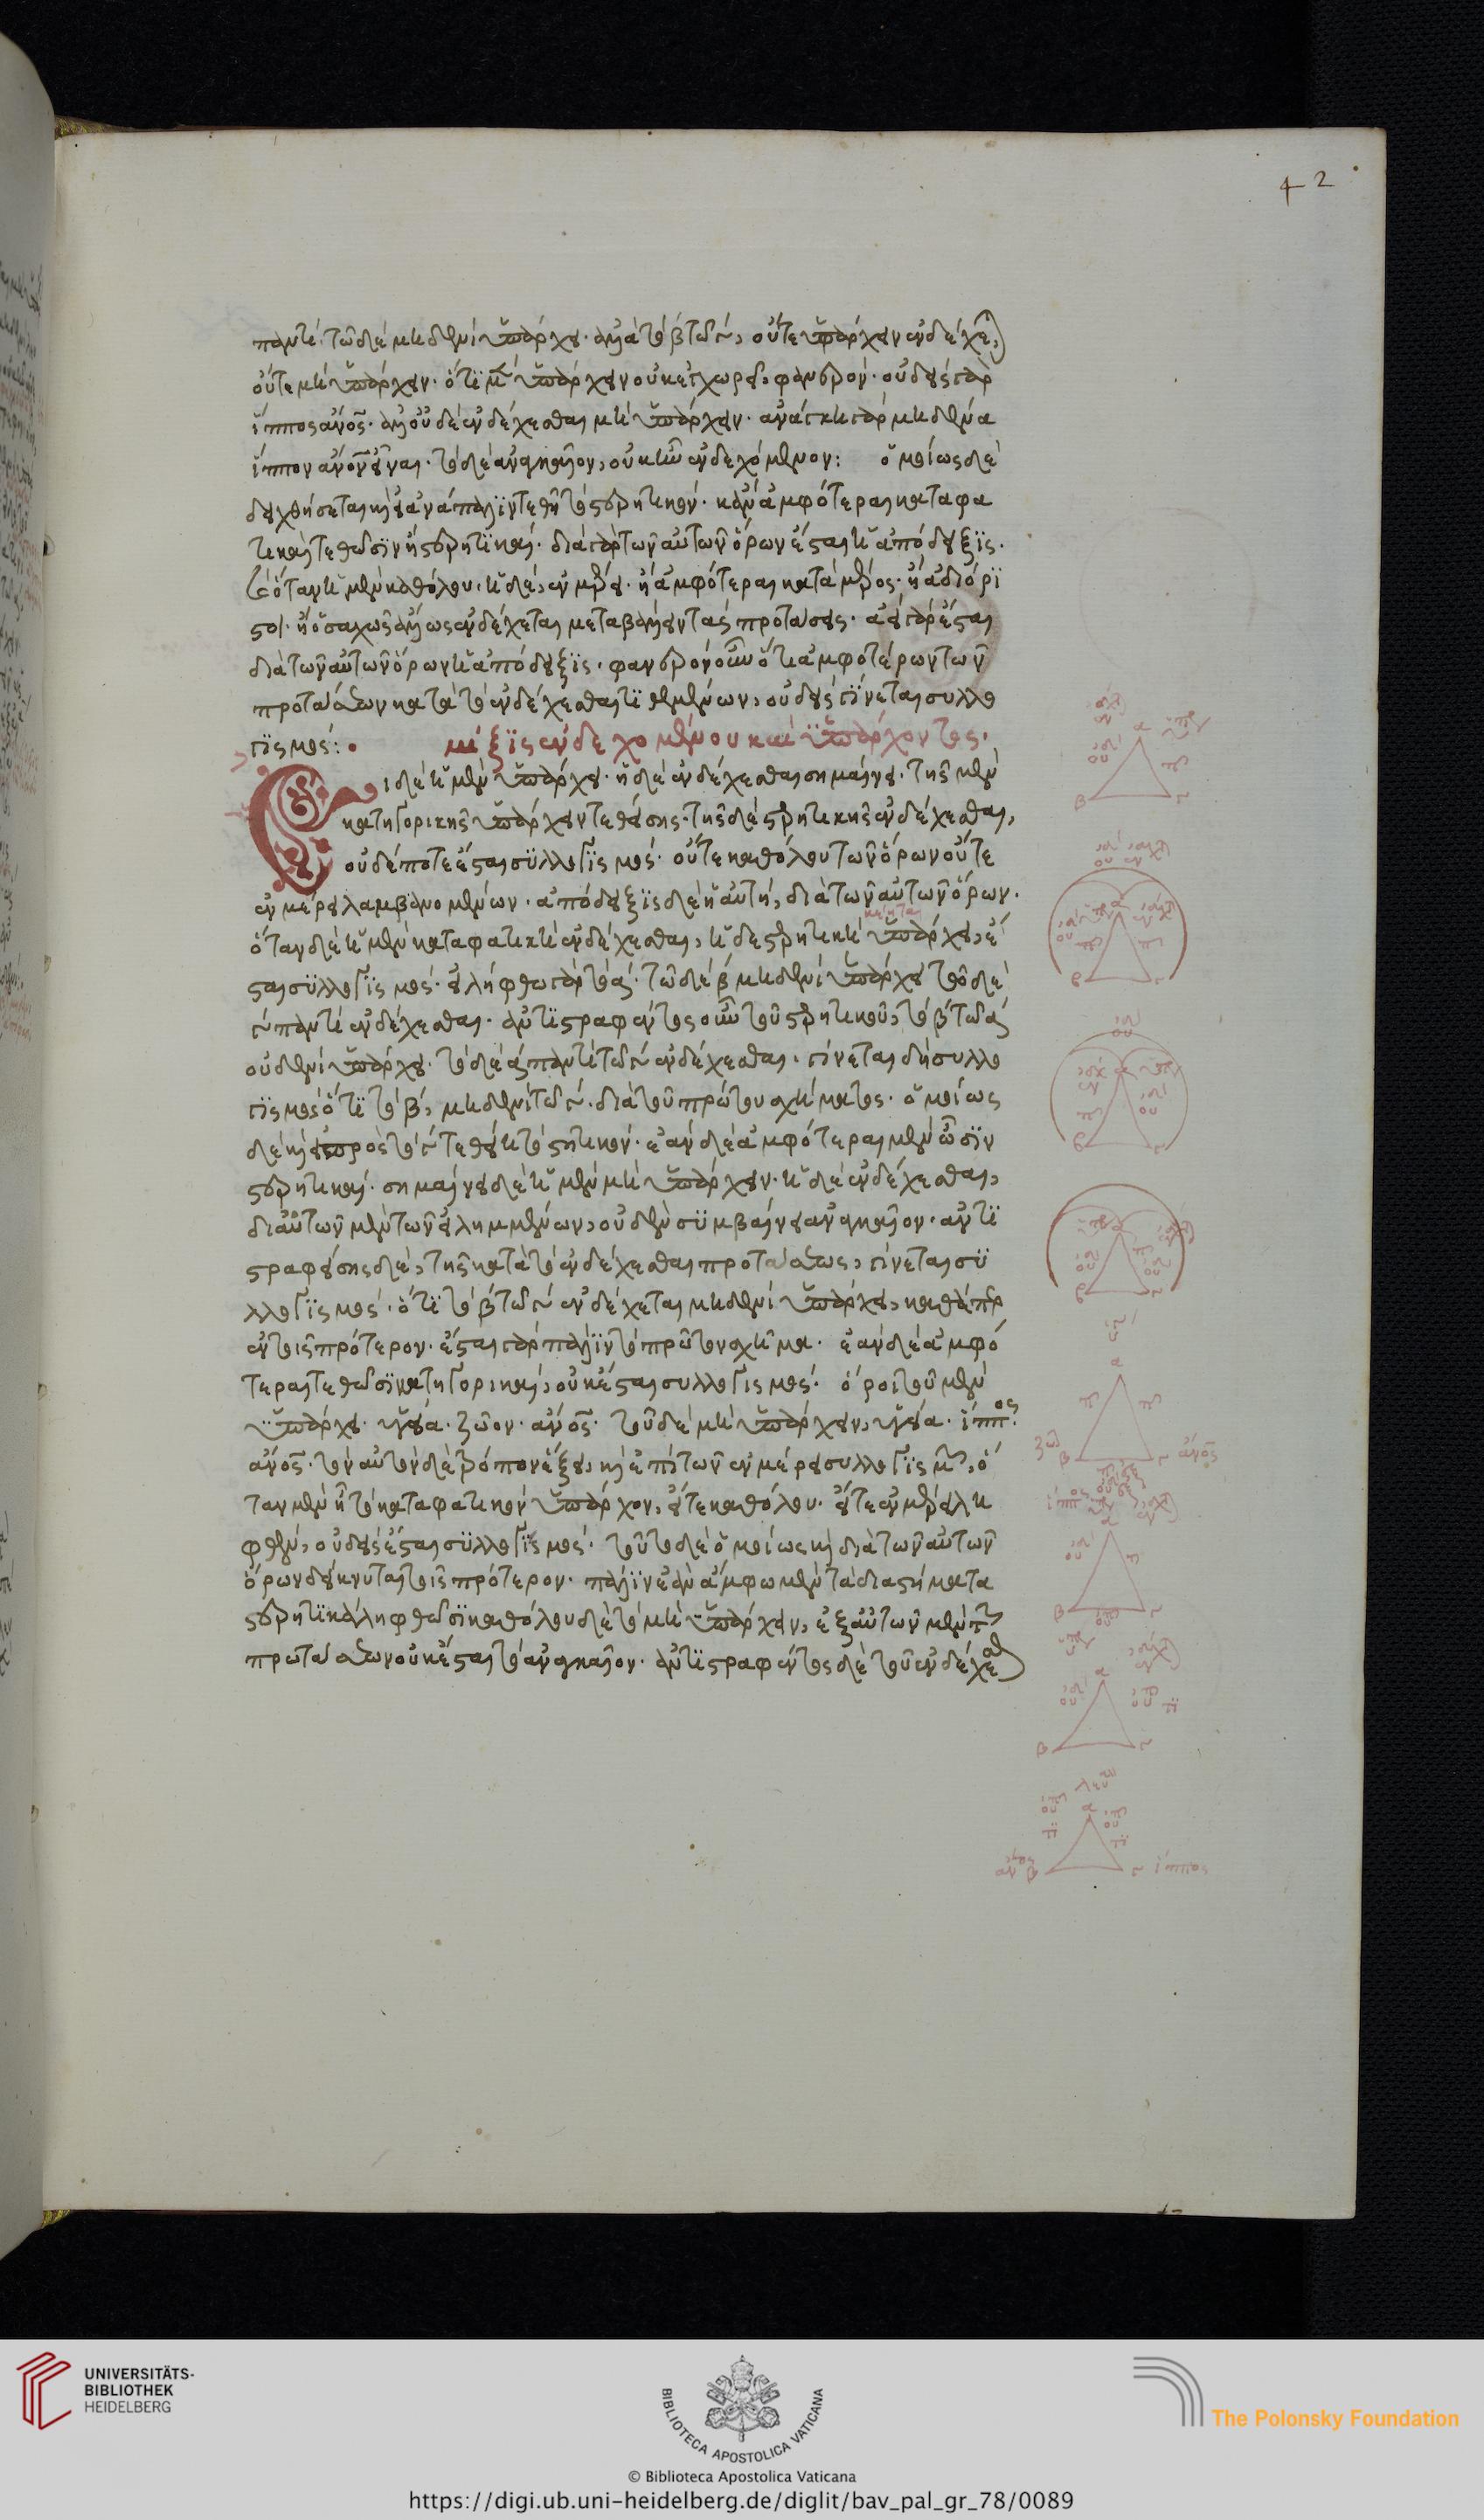 παντί· τῶ δὲ μηδενὶ ὑπάρχει· ἀλλὰ τὸ β τῶ γ, οὔτε ὑπάρχειν ἐνδέχεται
οὔτε μὴ ὑπάρχειν· ὅτι μὲν ὑπάρχειν οὐκ ἐγχωρεῖ, φανερόν· οὐδεὶς γὰρ
ἵππος ἄνος· ἀλλ' οὐδὲ ἐνδέχεσθαι μὴ ὑπάρχειν· ἀνάγκη γὰρ μηδένα
ἵππον ἄνον εἶναι· τὸ δὲ ἀναγκαῖον, οὐκ ἦν ἐνδεχόμενον: ὁμοίως δὲ
δειχθήσεται καὶ εἰ ἀνάπαλιν τεθῆ τὸ στερητικόν· κἂν ἀμφότεραι καταφα
τικαὶ τεθῶσιν ἢ στερητικαί· διὰ γὰρ τῶν αὐτῶν ὅρων ἔσται ἡ ἀπόδειξις·
καὶ ὅταν ἡ μὲν καθόλου· ἡ δὲ, ἐν μέρει· ἢ ἀμφότεραι κατὰ μέρος· ἢ ἀδιόρι
στοι· ἢ ὁσαχῶς ἄλλως ἐνδέχεται μεταβάλλειν τὰς προτάσεις· ἀεὶ γὰρ ἔσται
διὰ τῶν αὐτῶν ὅρων ἡ ἀπόδειξις· φανερὸν οὖν ὅτι ἀμφοτέρων τῶν
προτάσεων κατὰ τὸ ἐνδέχεσθαι τιθεμένων, οὐδεὶς γίνεται συλλο
γισμός:
μίξις ἐνδεχομένου καὶ ὑπάρχοντος·
Εἰ δὲ ἡ μὲν ὑπάρχει· ἡ δὲ ἐνδέχεσθαι σημαίνει· τῆς μὲν
κατηγορικῆς ὑπάρχειν τεθείσης· τῆς δὲ στερητικῆς ἐνδέχεσθαι,
οὐδέποτε ἔσται συλλογισμός· οὔτε καθόλου τῶν ὅρων οὔτε
ἐν μέρει λαμβανομένων· ἀπόδειξις δὲ ἡ αὐτὴ, διὰ τῶν αὐτῶν ὅρων·
ὅταν δὲ ἡ μὲν καταφατικὴ ἐνδέχεσθαι, ἡ δὲ στερητικὴ ὑπάρχει, ἔ
σται συλλογισμός· εἰλήφθω γὰρ τὸ α· τῶ δὲ β μηδενὶ ὑπάρχει τῶ δὲ
γ παντὶ ἐνδέχεσθαι· ἀντιστραφέντος οὖν τοῦ στερητικοῦ, τὸ β τῶ α
οὐδενὶ ὑπάρχει· τὸ δὲ α παντὶ τῶ γ ἐνδέχεσθαι· γίνεται δὴ συλλο
γισμὸς ὅτι τὸ β, μηδενὶ τῶ γ· διὰ τοῦ πρώτου σχήματος· ὁμοίως
δὲ καὶ εἰ πρὸς τὸ γ τεθείη τὸ στητικόν· ἐὰν δὲ ἀμφότεραι μὲν ὦσιν
στερητικαί· σημαίνει δὲ ἡ μὲν μὴ ὑπάρχειν· ἡ δὲ ἐνδέχεσθαι,
δι' αὐτῶν μὲν τῶν εἰλημμένων, οὐδὲν συμβαίνει ἀναγκαῖον· ἀντι
στραφείσης δὲ, τῆς κατὰ τὸ ἐνδέχεσθαι προτάσεως, γίνεται συ
λλογισμός· ὅτι τὸ β τῶ γ ἐνδέχεται μηδενὶ ὑπάρχει, καθάπερ
ἐν τοῖς πρότερον· ἔσται γὰρ πάλιν τὸ πρῶτον σχῆμα· ἐὰν δὲ ἀμφό
τεραι τεθῶσι κατηγορικαὶ, οὐκ ἔσται συλλογισμός· ὅροι τοῦ μὲν
ὑπάρχει· ὑγεία· ζῶον· ἄνος· τοῦ δὲ μὴ ὑπάρχειν, ὑγεία· ἵππος·
ἄνος· τὸν αὐτὸν δὲ τρόπον ἕξει, καὶ ἐπὶ τῶν ἐν μέρει συλλογισμῶν, ὅ
ταν μὲν ἦ τὸ καταφατικὸν ὑπάρχον, εἴτε καθόλου· εἴτε ἐν μέρει λη
φθὲν, οὐδεὶς ἔσται συλλογισμός· τοῦτο δὲ ὁμοίως καὶ διὰ τῶν αὐτῶν
ὅρων δείκνυται τοῖς πρότερον· πάλιν ἐὰν ἄμφω μὲν τὰ διαστήματα
στερητικὰ ληφθῶσι καθόλου δὲ τὸ μὴ ὑπάρχειν, ἐξ αὐτῶν μὲν τῶν
προτάσεων οὐκ ἔσται τὸ ἀναγκαῖον· ἀντιστραφέντος δὲ τοῦ ἐνδέχεσθαι
42
UNIVERSITÄTS-
BIBLIOTHEK
HEIDELBERG
BIBLIOTECA APOSTOLICA VATICANA
The Polonsky Foundation
© Biblioteca Apostolica Vaticana
https://digi.ub.uni-heidelberg.de/diglit/bav_pal_gr_78/0089